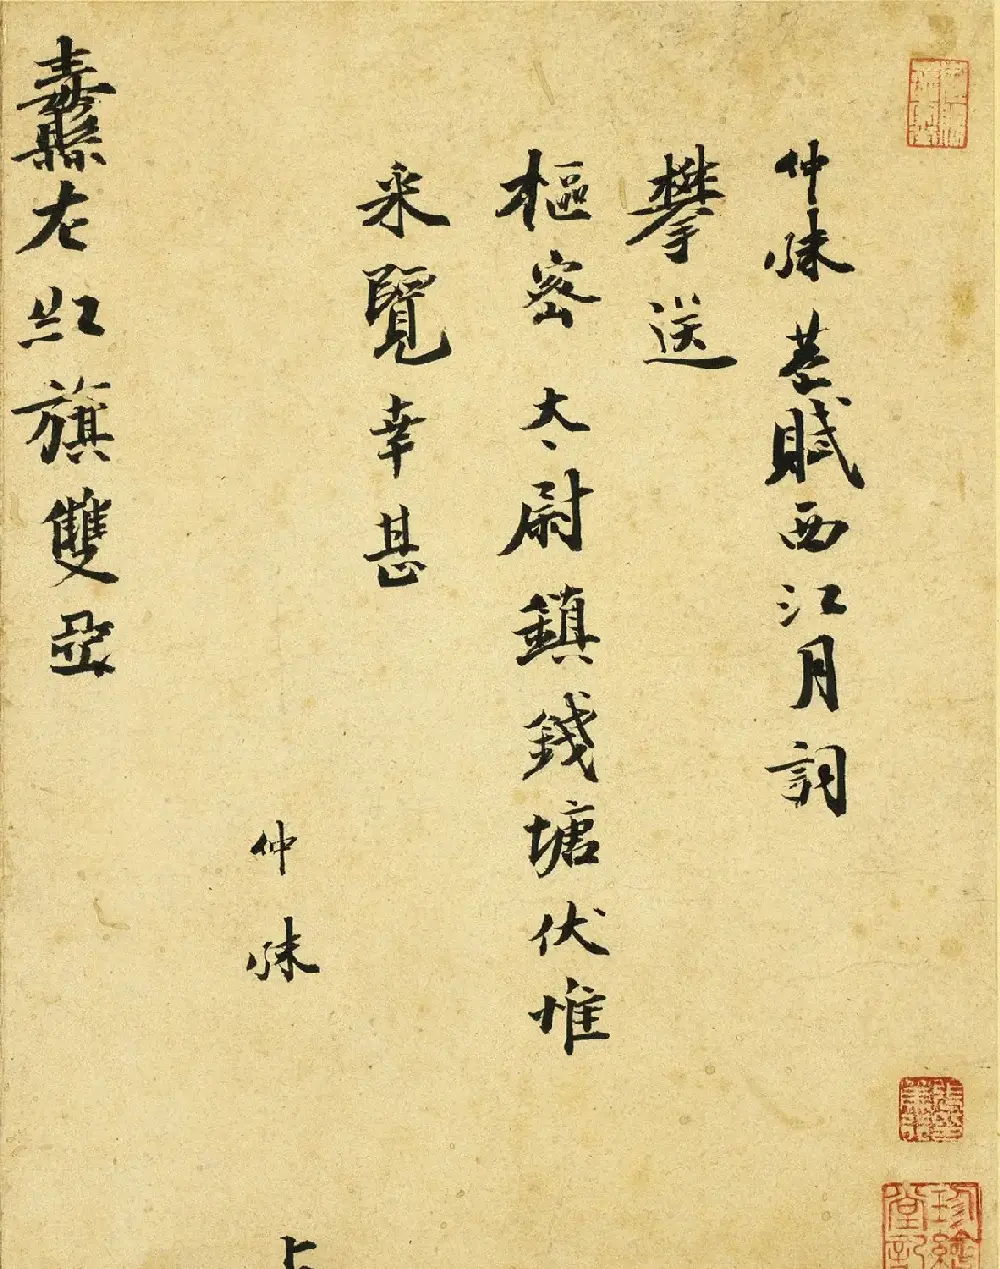 仲殊恭賦西江月詞
攀送
樞密太尉鎮錢塘伏惟
采覽幸甚
仲殊
上
纛左紅旗雙亞
珍繪堂記